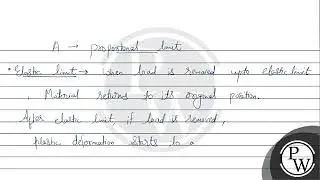 A → proportional limit
• Elastic limit → when load is removed upto elastic limit
, Material returns to its original position.
After elastic limit, if load is removed,
plastic deformation starts to a
P
W